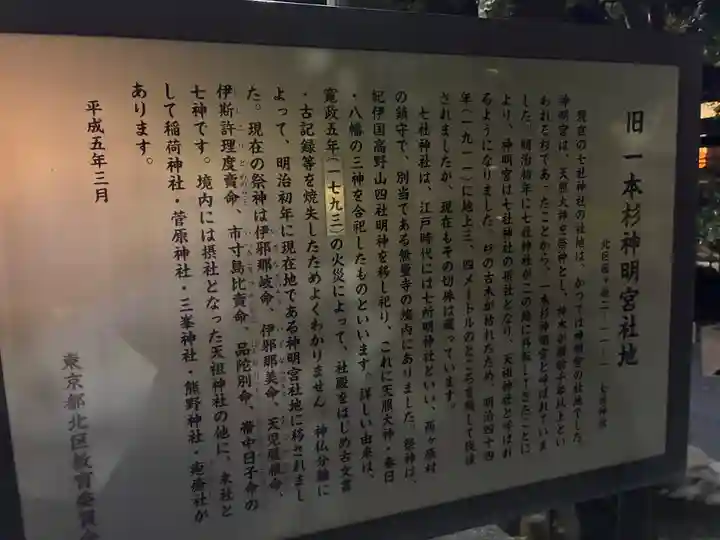 旧一本杉神明宮社地
北区西ヶ原二－一一－一　七社神社
現在の七社神社の社地は、かつては神明宮の社地でした。
神明宮は、天照大神を祭神とし、神木が樹齢千年以上とい
われる杉であったことから、一本杉神明宮と呼ばれていま
した。明治初年に七社神社がこの地に移転してきたことに
より、神明宮は七社神社の摂社となり、天祖神社と呼ばれ
るようになりました。杉の古木が枯れたため、明治四十四
年（一九一一）に地上三、四メートルのところを残して伐採
されましたが、現在もその切株は残っています。
七社神社は、江戸時代には七所明神社といい、西ヶ原村
の鎮守で、別当である無量寺の境内にありました。祭神は、
紀伊国高野山四社明神を移し祀り、これに天照大神・春日
・八幡の三神を合祀したものといいます。詳しい由来は、
寛政五年（一七九三）の火災によって、社殿をはじめ古文書
・古記録等を焼失したためよくわかりません。神仏分離に
よって、明治初年に現在地である神明宮社地に移されまし
た。現在の祭神は伊邪那岐命、伊邪那美命、天児屋根命、
伊斯許理度賣命、市寸島比賣命、品陀別命、帯中日子命の
七神です。境内には摂社となった天祖神社の他に、末社と
して稲荷神社・菅原神社・三峯神社・熊野神社・疱瘡社が
あります。
平成五年三月
東京都北区教育委員会